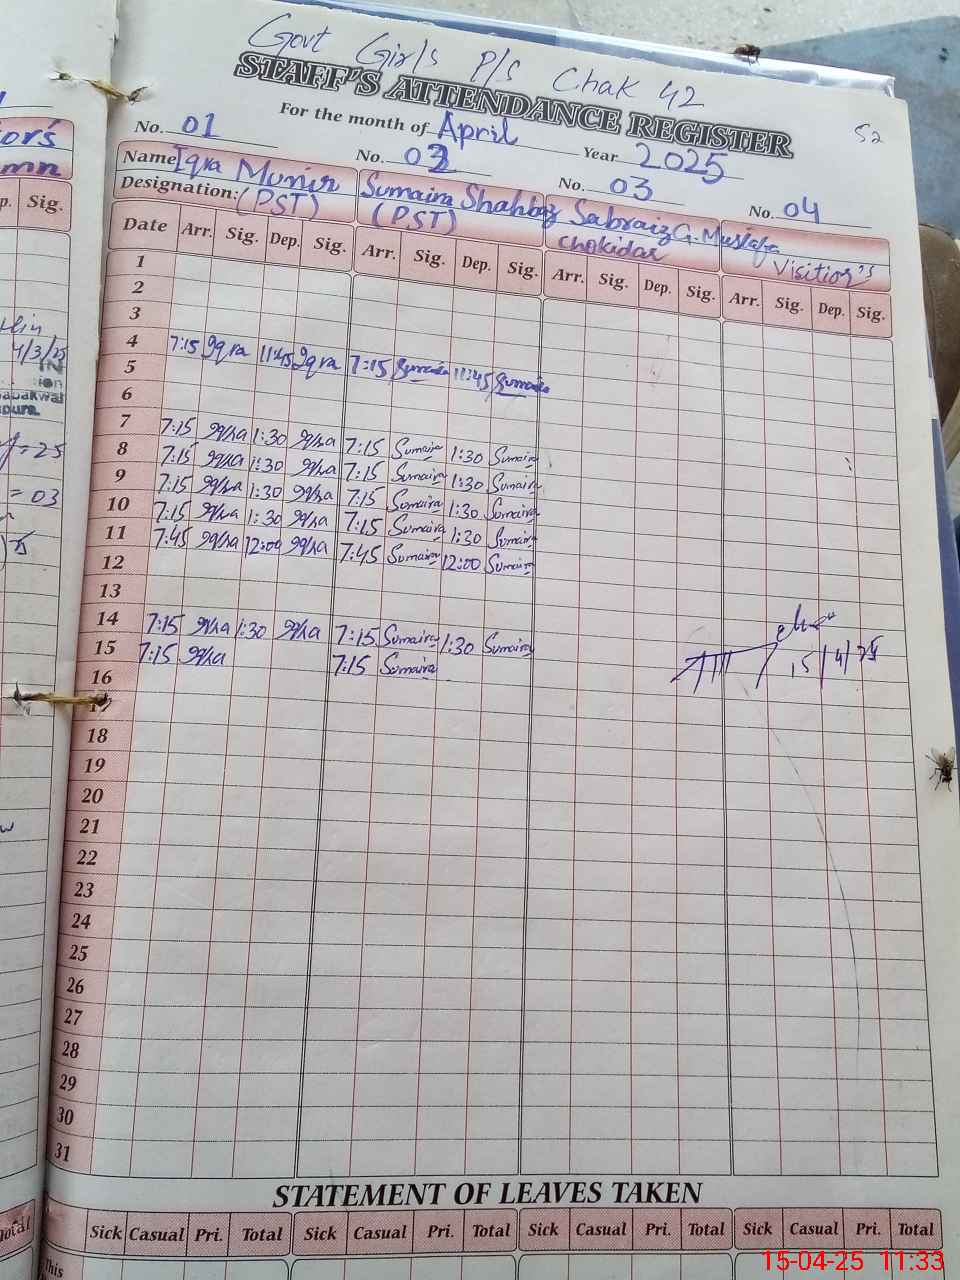 Govt Girls P/S Chak 42
STAFF'S ATTENDANCE REGISTER
52
For the month of April Year 2025
No. 01 No. 02 No. 03 No. 04
Name Iqra Munir Sumaira Shahbaz Sabraiz G. Mustafa Visitior's
Designation: (PST) (PST) Chokidar
Date Arr. Sig. Dep. Sig. Arr. Sig. Dep. Sig. Arr. Sig. Dep. Sig. Arr. Sig. Dep. Sig.
1
2
3
4 7:15 Iqra 11:45 Iqra 7:15 Sumaira 11:45 Sumaira
5
6
7 7:15 Iqra 1:30 Iqra 7:15 Sumaira 1:30 Sumaira
8 7:15 Iqra 1:30 Iqra 7:15 Sumaira 1:30 Sumaira
9 7:15 Iqra 1:30 Iqra 7:15 Sumaira 1:30 Sumaira
10 7:15 Iqra 1:30 Iqra 7:15 Sumaira 1:30 Sumaira
11 7:45 Iqra 12:00 Iqra 7:45 Sumaira 12:00 Sumaira
12
13
14 7:15 Iqra 1:30 Iqra 7:15 Sumaira 1:30 Sumaira
15 7:15 Iqra 7:15 Sumaira 15/4/25
16
17
18
19
20
21
22
23
24
25
26
27
28
29
30
31
STATEMENT OF LEAVES TAKEN
Sick Casual Pri. Total Sick Casual Pri. Total Sick Casual Pri. Total Sick Casual Pri. Total
This
15-04-25 11:33
ior's
mn
p. Sig.
4/3/25
IN
ion
= 25
= 03
Total